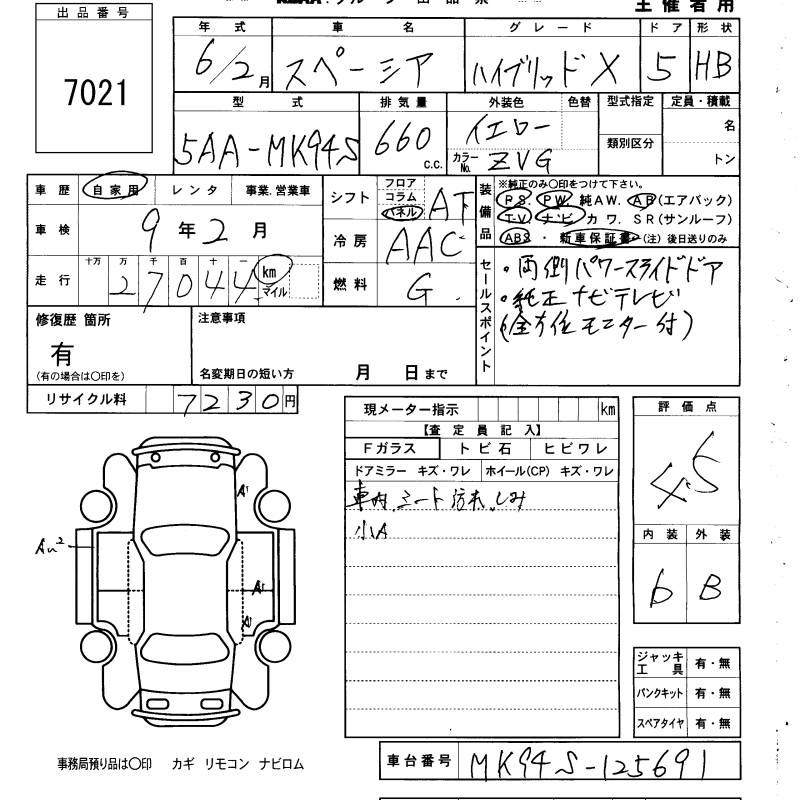 出品番号
7021
主催者用
年式 車名 グレード ドア 形状
6/2月 スペーシア ハイブリッドX 5 HB
型式 排気量 外装色 色替 型式指定 定員・積載
5AA-MK94S 660 c.c. イエロー 類別区分 名
カラーNo. ZVG トン
車歴 自家用 レンタ 事業.営業車
車検 9年2月
走行 十万 万 千 百 十 一
27044 km マイル
シフト フロア コラム パネル AT
冷房 AAC
燃料 G
装備品 ※純正のみ○印をつけて下さい。
PS PW 純AW. AB(エアバッグ)
TV ナビ カワ. SR(サンルーフ)
ABS ・ 新車保証書 (注)後日送りのみ
セールスポイント
・両側パワースライドドア
・純正ナビテレビ
(全方位モニター付)
修復歴 箇所
有
(有の場合は○印を)
注意事項
名変期日の短い方 月 日まで
リサイクル料 7230円
現メーター指示 km
【査定員記入】
Fガラス トビ石 ヒビワレ
ドアミラー キズ・ワレ ホイール(CP) キズ・ワレ
車内 シート 汚れ しみ
小A
評価点
4.5
内装 外装
b B
A1
Au2
A1
A1
ジャッキ 工具 有・無
パンクキット 有・無
スペアタイヤ 有・無
事務局預り品は○印 カギ リモコン ナビロム
車台番号 MK94S-125691